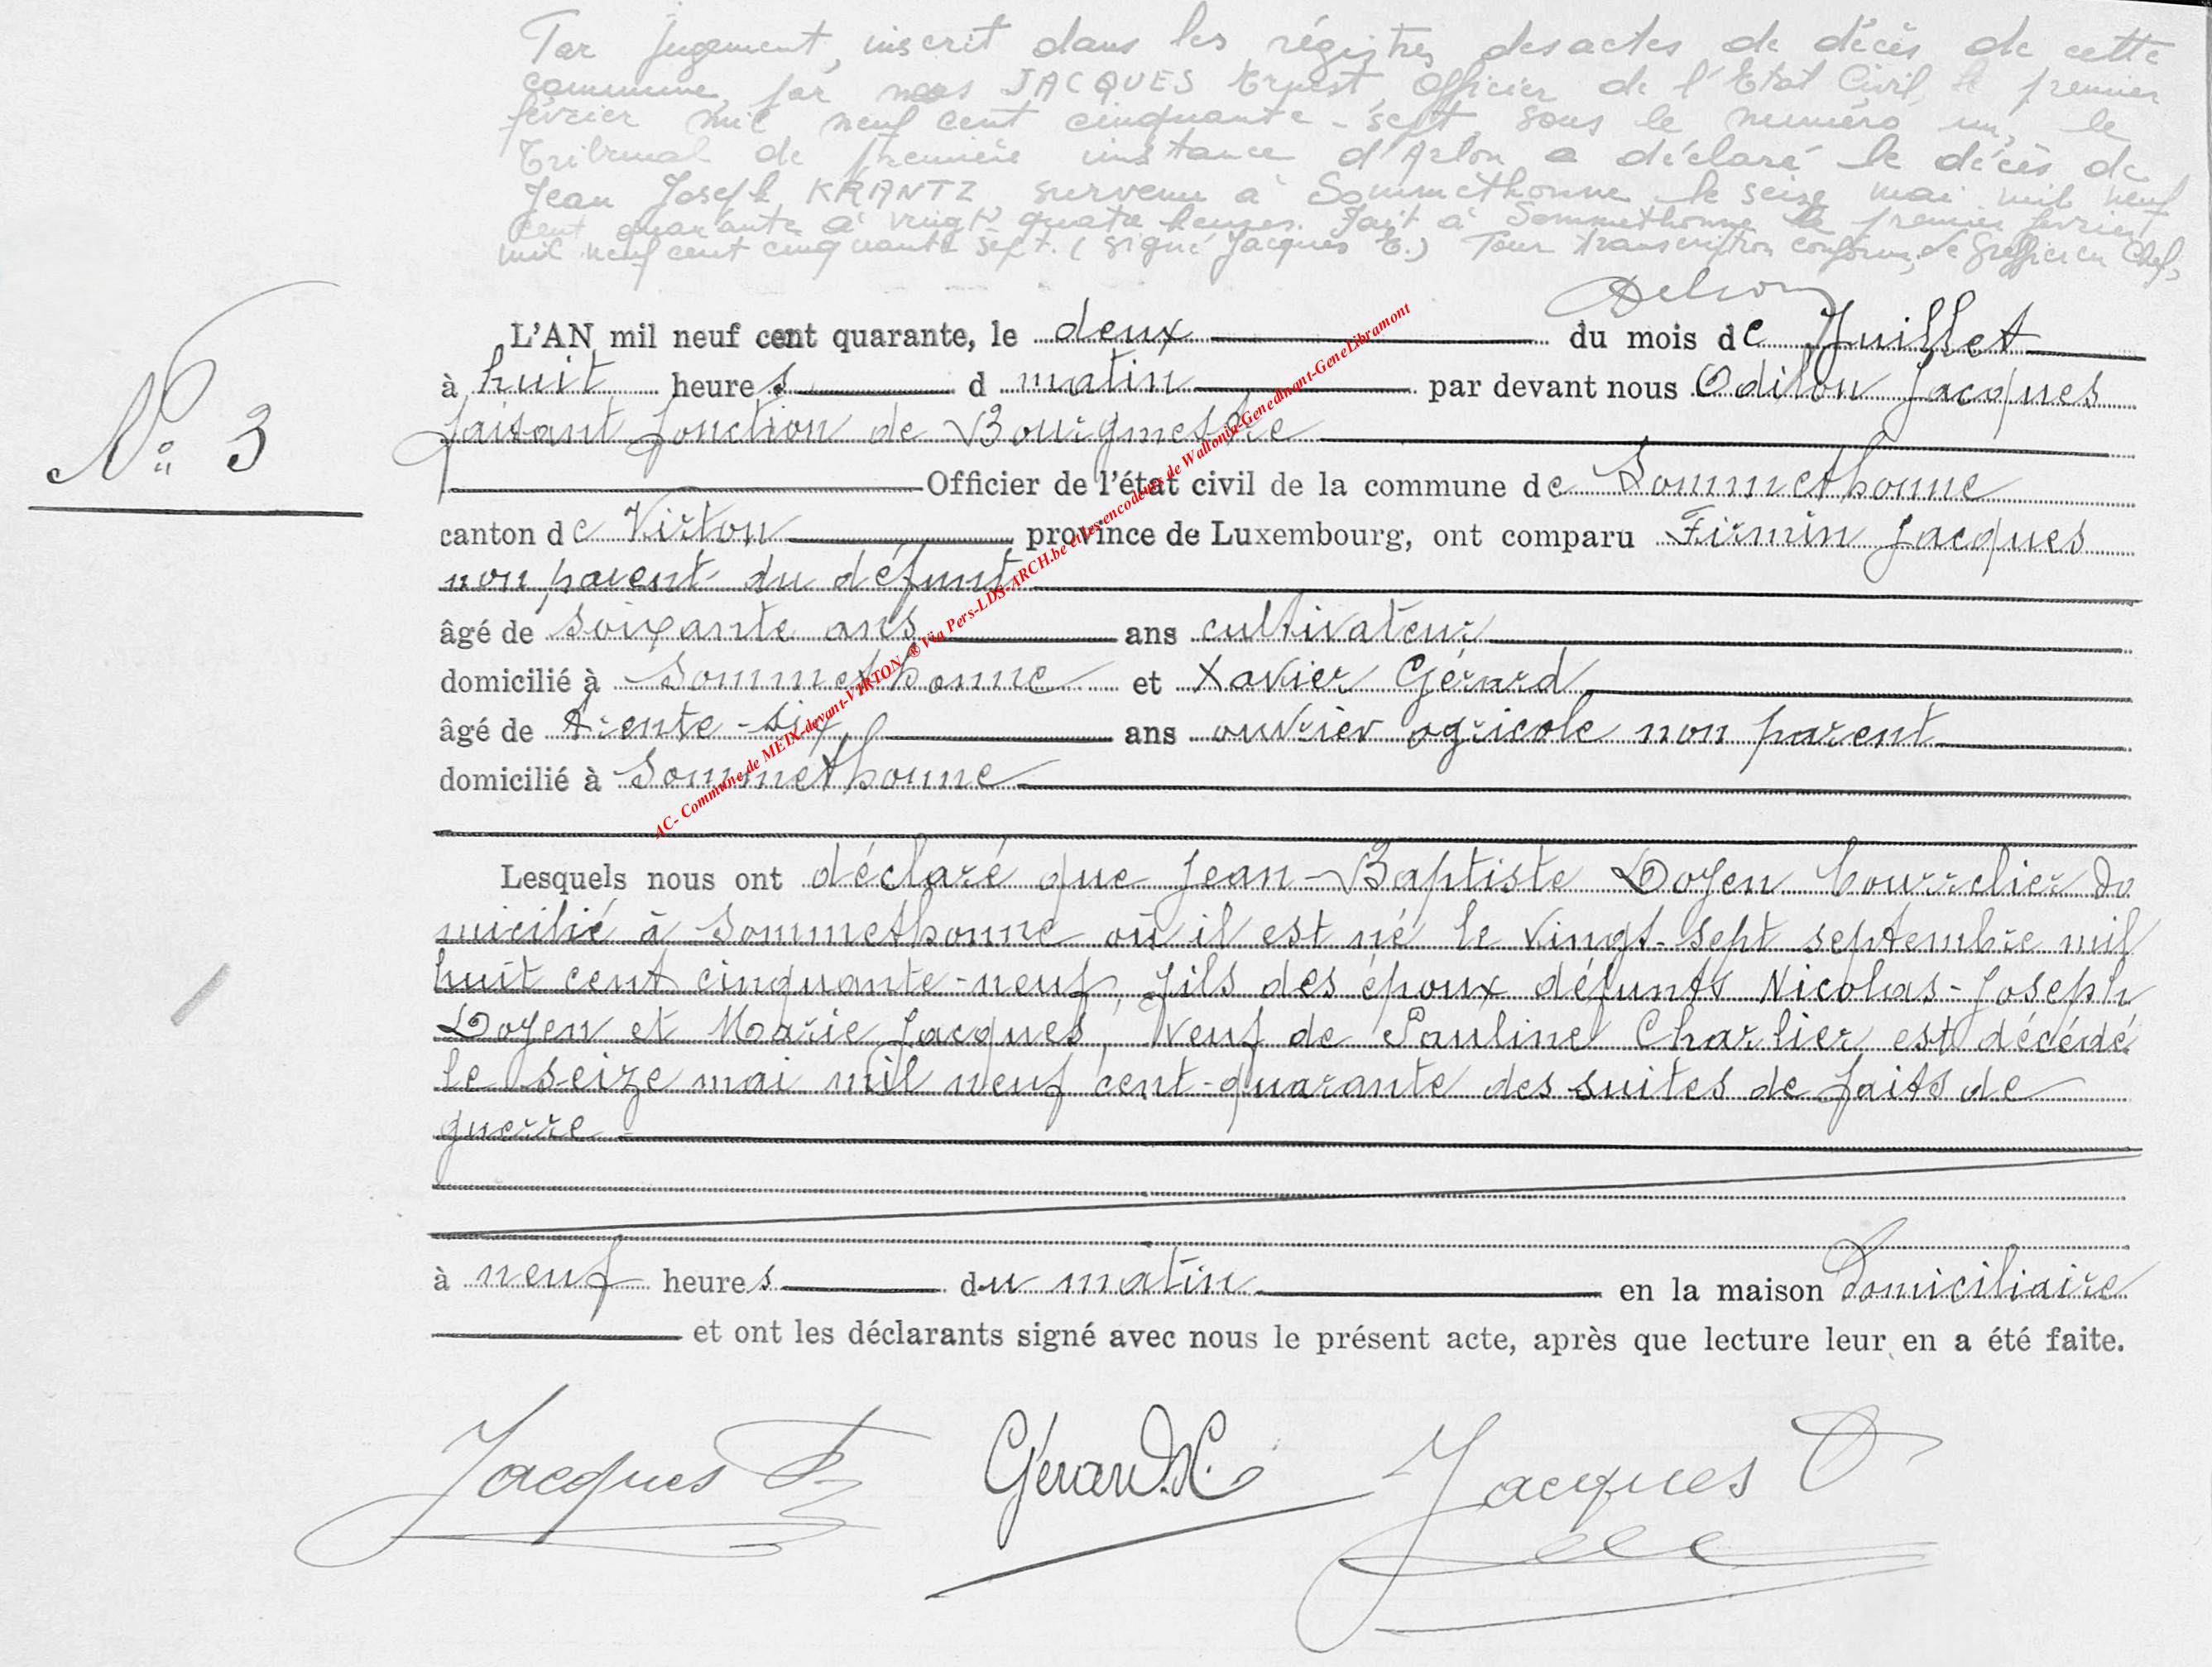 Par jugement, inscrit dans les régistres des actes de décès de cette
commune, par nous JACQUES Ernest Officier de l'Etat Civil, le premier
février mil neuf cent cinquante-sept, sous le numéro un, le
Tribunal de première instance d'Arlon a déclaré le décès de
Jean Joseph KRANTZ survenu à Sommethonne le seize mai mil neuf
cent quarante à vingt quatre heures. Fait à Sommethonne le premier février
mil neuf cent cinquante sept. (signé Jacques E.) Pour transcription conforme, Le Greffier en Chef,
L'AN mil neuf cent quarante, le deux du mois de Juillet
à huit heures d matin par devant nous Odilon Jacques
faisant fonction de Bourgmestre
N° 3
Officier de l'état civil de la commune de Sommethonne
canton de Virton province de Luxembourg, ont comparu Firmin Jacques
non parent du défunt
âgé de soixante ans ans cultivateur
domicilié à Sommethonne et Xavier Gérard
âgé de trente-six ans ouvrier agricole non parent
domicilié à Sommethonne
AC- Commune de MEIX-devant-VIRTON ® Via Pers-LDS-ARCH.be et les encodeurs de Wallonia-Genedinant-GeneLibramont
Lesquels nous ont déclaré que Jean-Baptiste Doyen bourrelier do
micilié à Sommethonne où il est né le vingt-sept septembre mil
huit cent cinquante-neuf, fils des époux défunts Nicolas-Joseph
Doyen et Marie Jacques, veuf de Pauline Charlier est décédé
le seize mai mil neuf cent-quarante des suites de faits de
guerre
à neuf heures du matin en la maison domiciliaire
et ont les déclarants signé avec nous le présent acte, après que lecture leur en a été faite.
Jacques F Gérard X. Jacques O